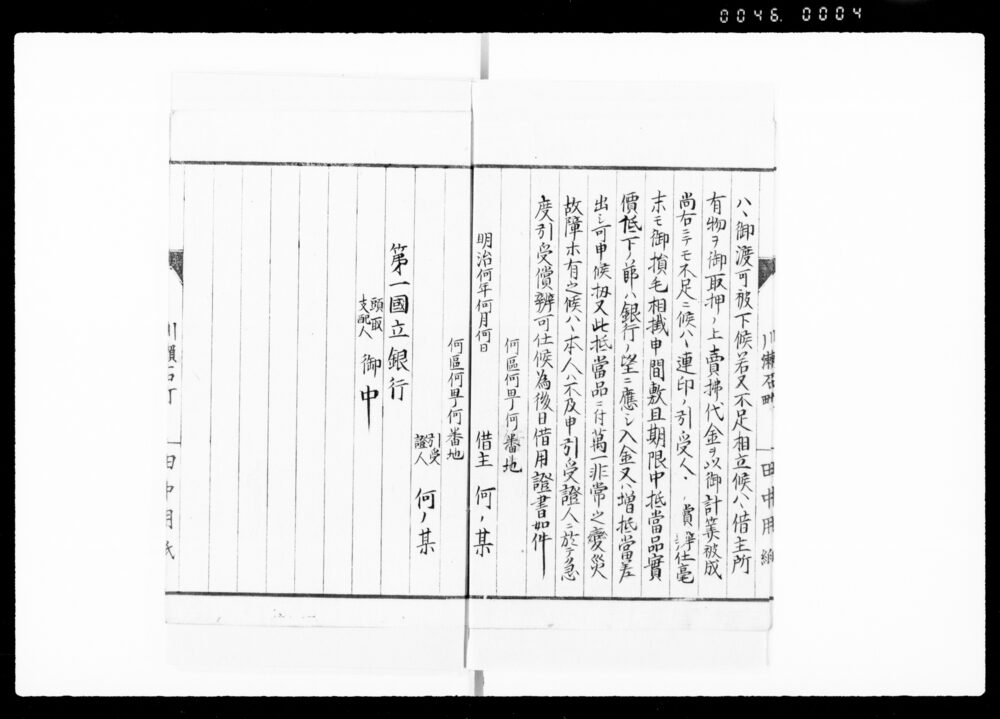 0046. 0004
川瀬石町 田中用紙
ハヽ御渡可被下候若又不足相立候ハヽ借主所
有物ヲ御取押ノ上賣拂代金ヲ以御計算被成
尚右ニテモ不足ニ候ハヽ連印ノ引受人 償辨仕毫
末モ御損毛相掛申間敷且期限中抵當品實
價低下ノ節ハ銀行ノ望ニ應シ入金又ハ増抵當差
出シ可申候扨又此抵當品ニ付萬一非常之變災
故障ホ有之候ハヽ本人ハ不及申引受證人ニ於テ急
度引受償辨可仕候為後日借用證書如件
何區何町何番地
明治何年何月何日 借主 何ノ某
何區何町何番地
引受證人 何ノ某
第一國立銀行
頭取
支配人 御中
川瀬石町 田中用紙